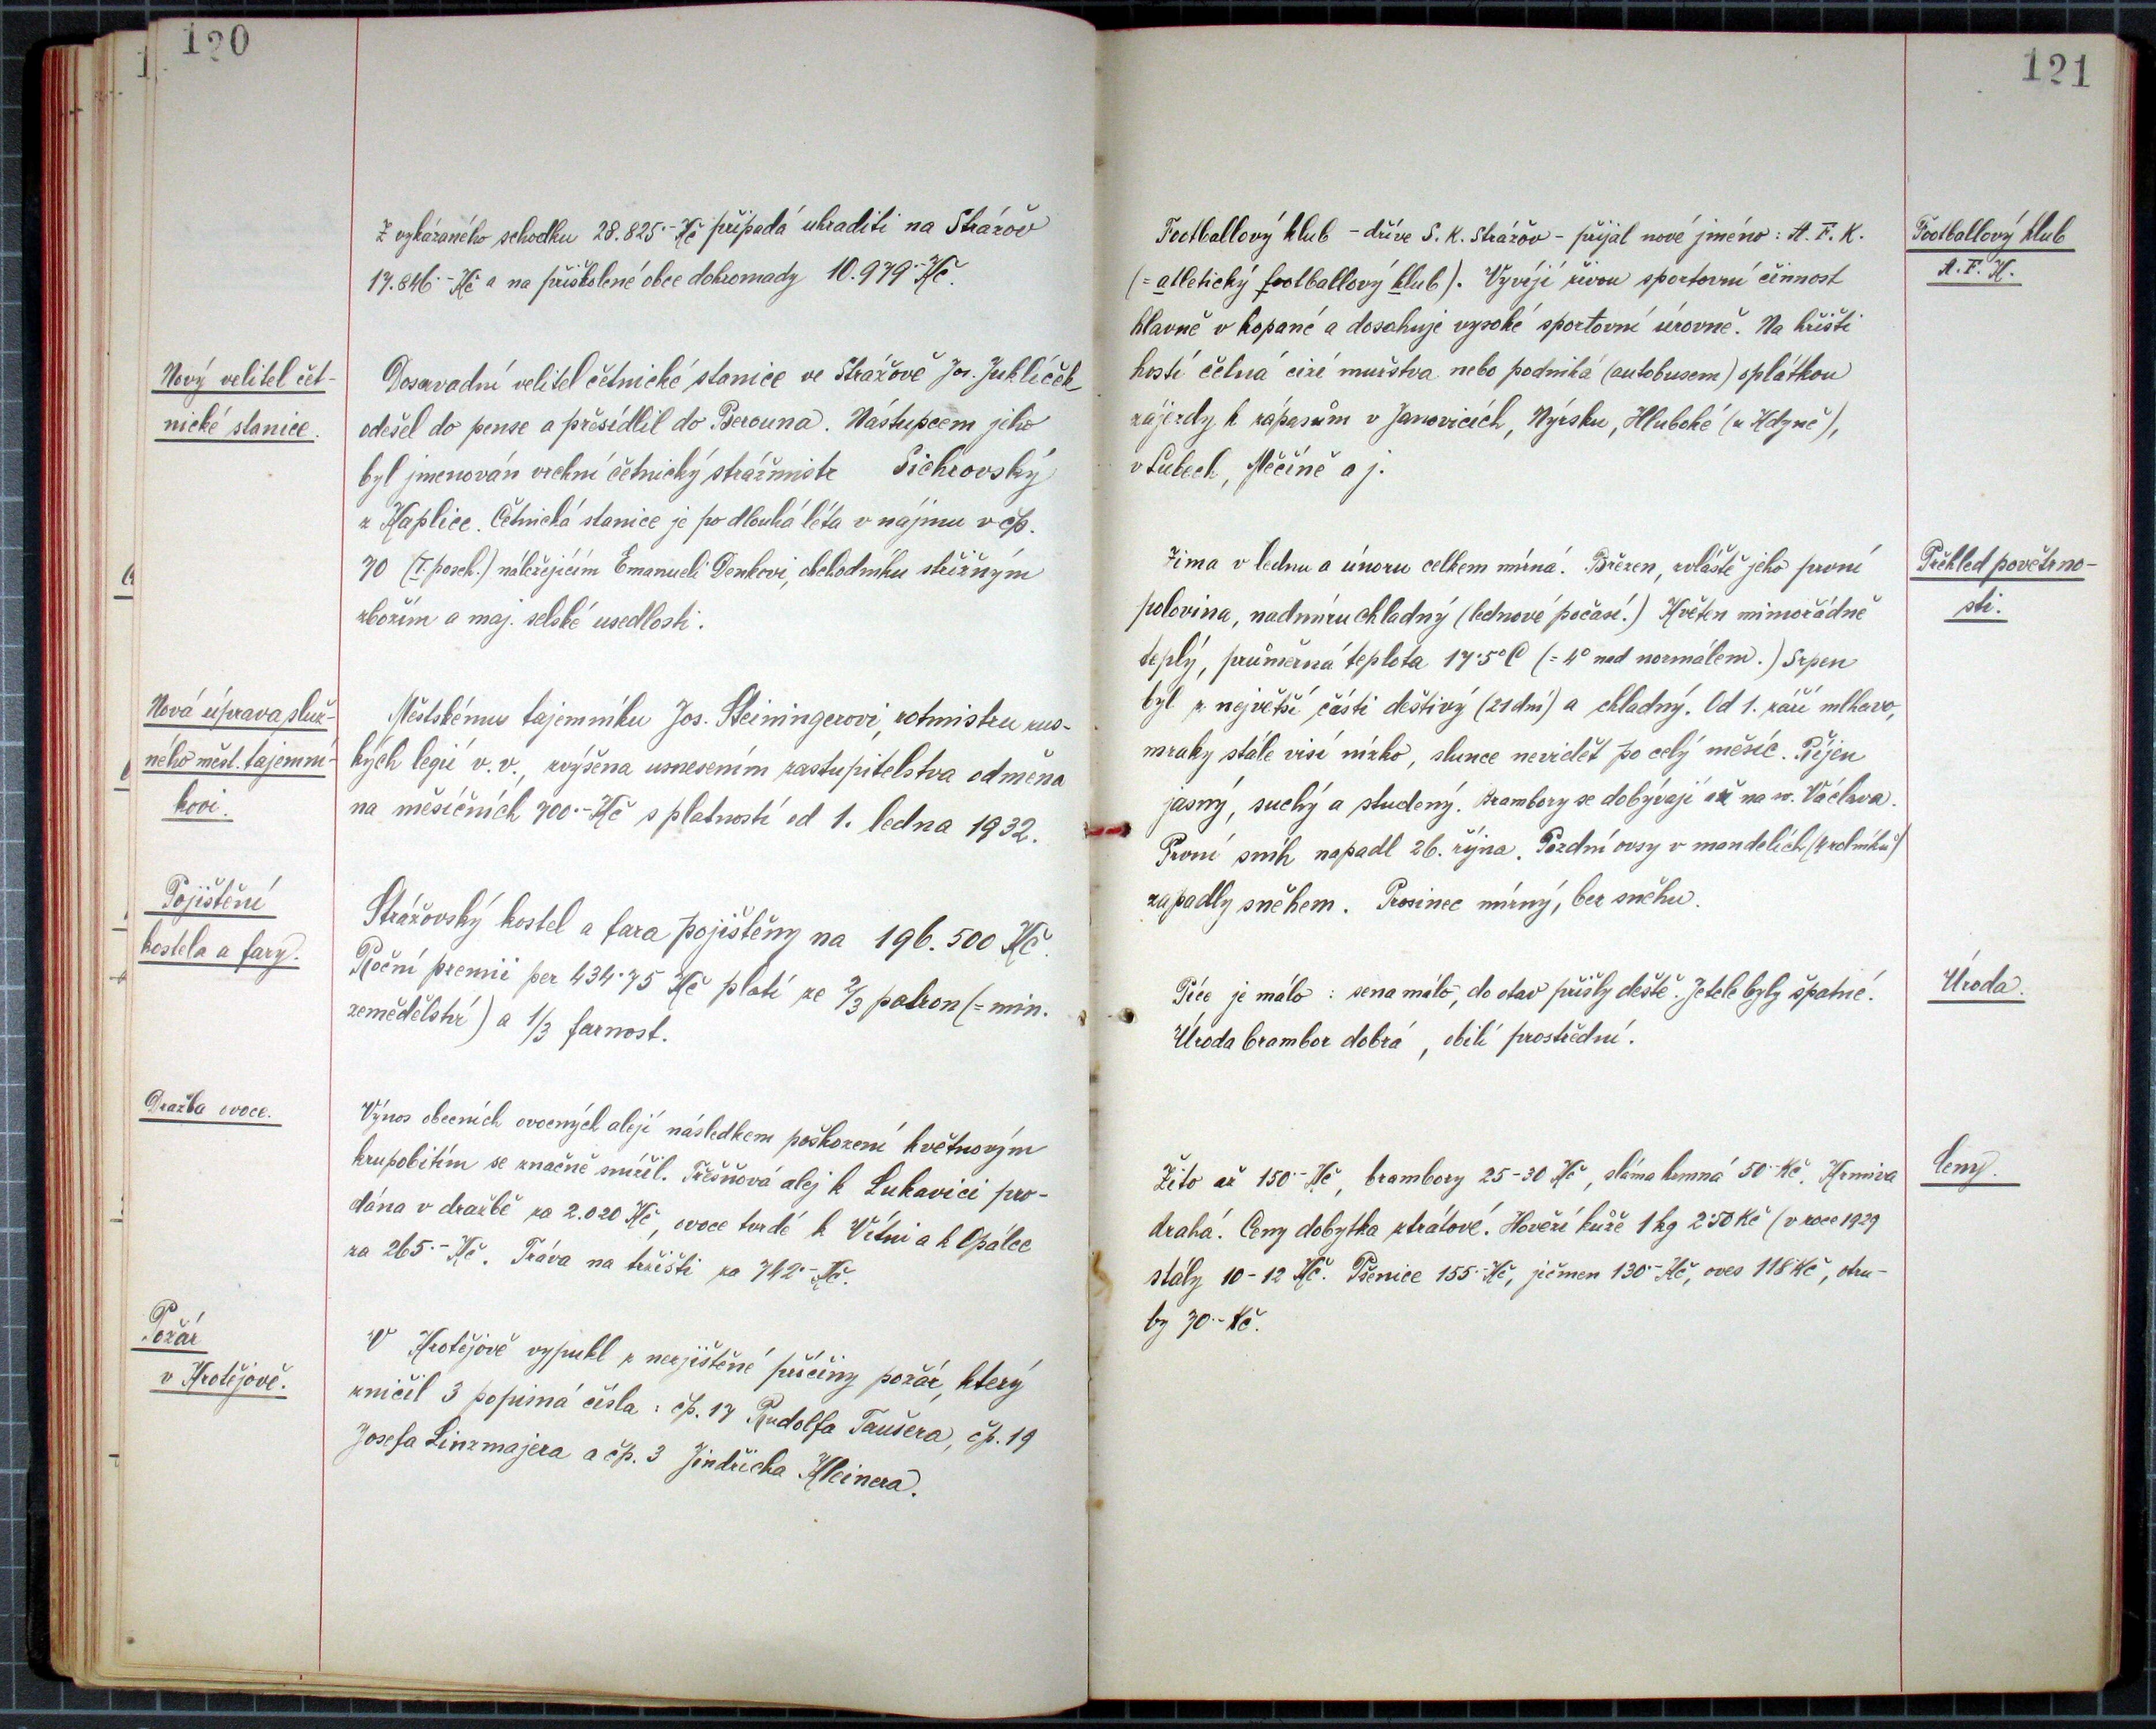 120
Z vykázaného schodku 28.825·- Kč připadá uhraditi na Strážov
17.846·- Kč a na přiškolené obce dohromady 10.979·- Kč.
Nový velitel čet-
nické stanice.
Dosavadní velitel četnické stanice ve Strážově Jos. Juklíček
odešel do pense a přesídlil do Berouna. Nástupcem jeho
byl jmenován vrchní četnický strážmistr Sichrovský
z Kaplice. Četnická stanice je po dlouhá léta v nájmu v čp.
70 (I. posch.) náležejícím Emanueli Denkovi, obchodníku střižným
zbožím a maj. selské usedlosti.
Nová úprava služ-
ného měst. tajemní-
kovi.
Městskému tajemníku Jos. Steiningerovi, rotmistru rus-
kých legií v. v., zvýšena usnesením zastupitelstva odměna
na měsíčních 700·- Kč s platností od 1. ledna 1932.
Pojištění
kostela a fary.
Strážovský kostel a fara pojištěny na 196.500 Kč.
Roční premii per 434·75 Kč platí ze 2/3 patron (= min.
zemědělství) a 1/3 farnost.
Dražba ovoce.
Výnos obecních ovocných alejí následkem poškození květnovým
krupobitím se značně snížil. Třešňová alej k Lukavici pro-
dána v dražbě za 2.020 Kč, ovoce tvrdé k Vítni a k Opálce
za 265·- Kč. Tráva na tržišti za 742·- Kč.
Požár
v Krotějově.
V Krotějově vypukl z nezjištěné příčiny požár, který
zničil 3 popisná čísla: čp. 17 Rudolfa Taušera, čp. 19
Josefa Linzmajera a čp. 3 Jindřicha Kleinera.
121
Footballový klub - dříve S. K. Strážov - přijal nové jméno: A. F. K.
(= atletický footballový klub). Vyvíjí živou sportovní činnost
hlavně v kopané a dosahuje vysoké sportovní úrovně. Na hřišti
hostí četná cizí mužstva nebo podniká (autobusem) oplátkou
zájezdy k zápasům v Janovicích, Nýrsku, Hluboké (u Kdyně),
v Lubech, Měčíně a j.
Footballový klub
A. F. K.
Zima v lednu a únoru celkem mírná. Březen, zvláště jeho první
polovina, nadmíru chladný (lednové počasí.) Květen mimořádně
teplý, průměrná teplota 17·5° C (= 4° nad normálem.) Srpen
byl z největší části deštivý (21 dní) a chladný. Od 1. září mlhavo,
mraky stále visí nízko, slunce nevidět po celý měsíc. Říjen
jasný, suchý a studený. Brambory se dobývají až na sv. Václava.
První sníh napadl 26. října. Pozdní ovsy v mandelích (4 rolníků)
zapadly sněhem. Prosinec mírný, bez sněhu.
Přehled povětrno-
sti.
Píce je málo: sena málo, do otav přišly deště. Jetele byly špatné.
Úroda brambor dobrá, obilí prostřední.
Úroda.
Žito až 150·- Kč, brambory 25-30 Kč, sláma krmná 50·- Kč. Krmiva
drahá. Ceny dobytka ztrátové. Hovězí kůže 1 kg 2·50 Kč (v roce 1929
stály 10-12 Kč. Pšenice 155·- Kč, ječmen 130·- Kč, oves 118 Kč, otru-
by 70·- Kč.
Ceny.